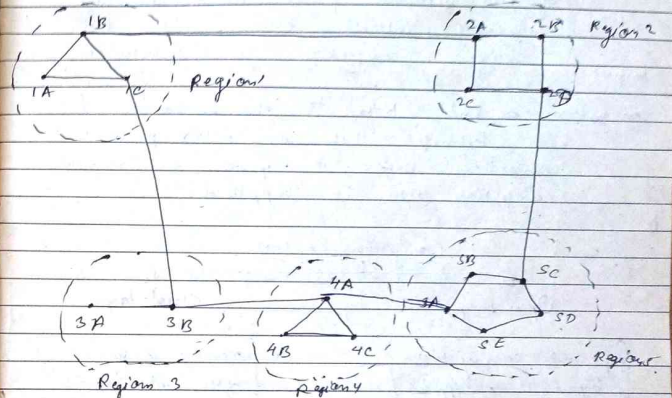 1B
2A
2B
Region 2
1A
1C
Region 1
2C
2D
5B
5C
4A
5A
3A
3B
5D
4B
4C
5E
Region 5
Region 3
Region 4